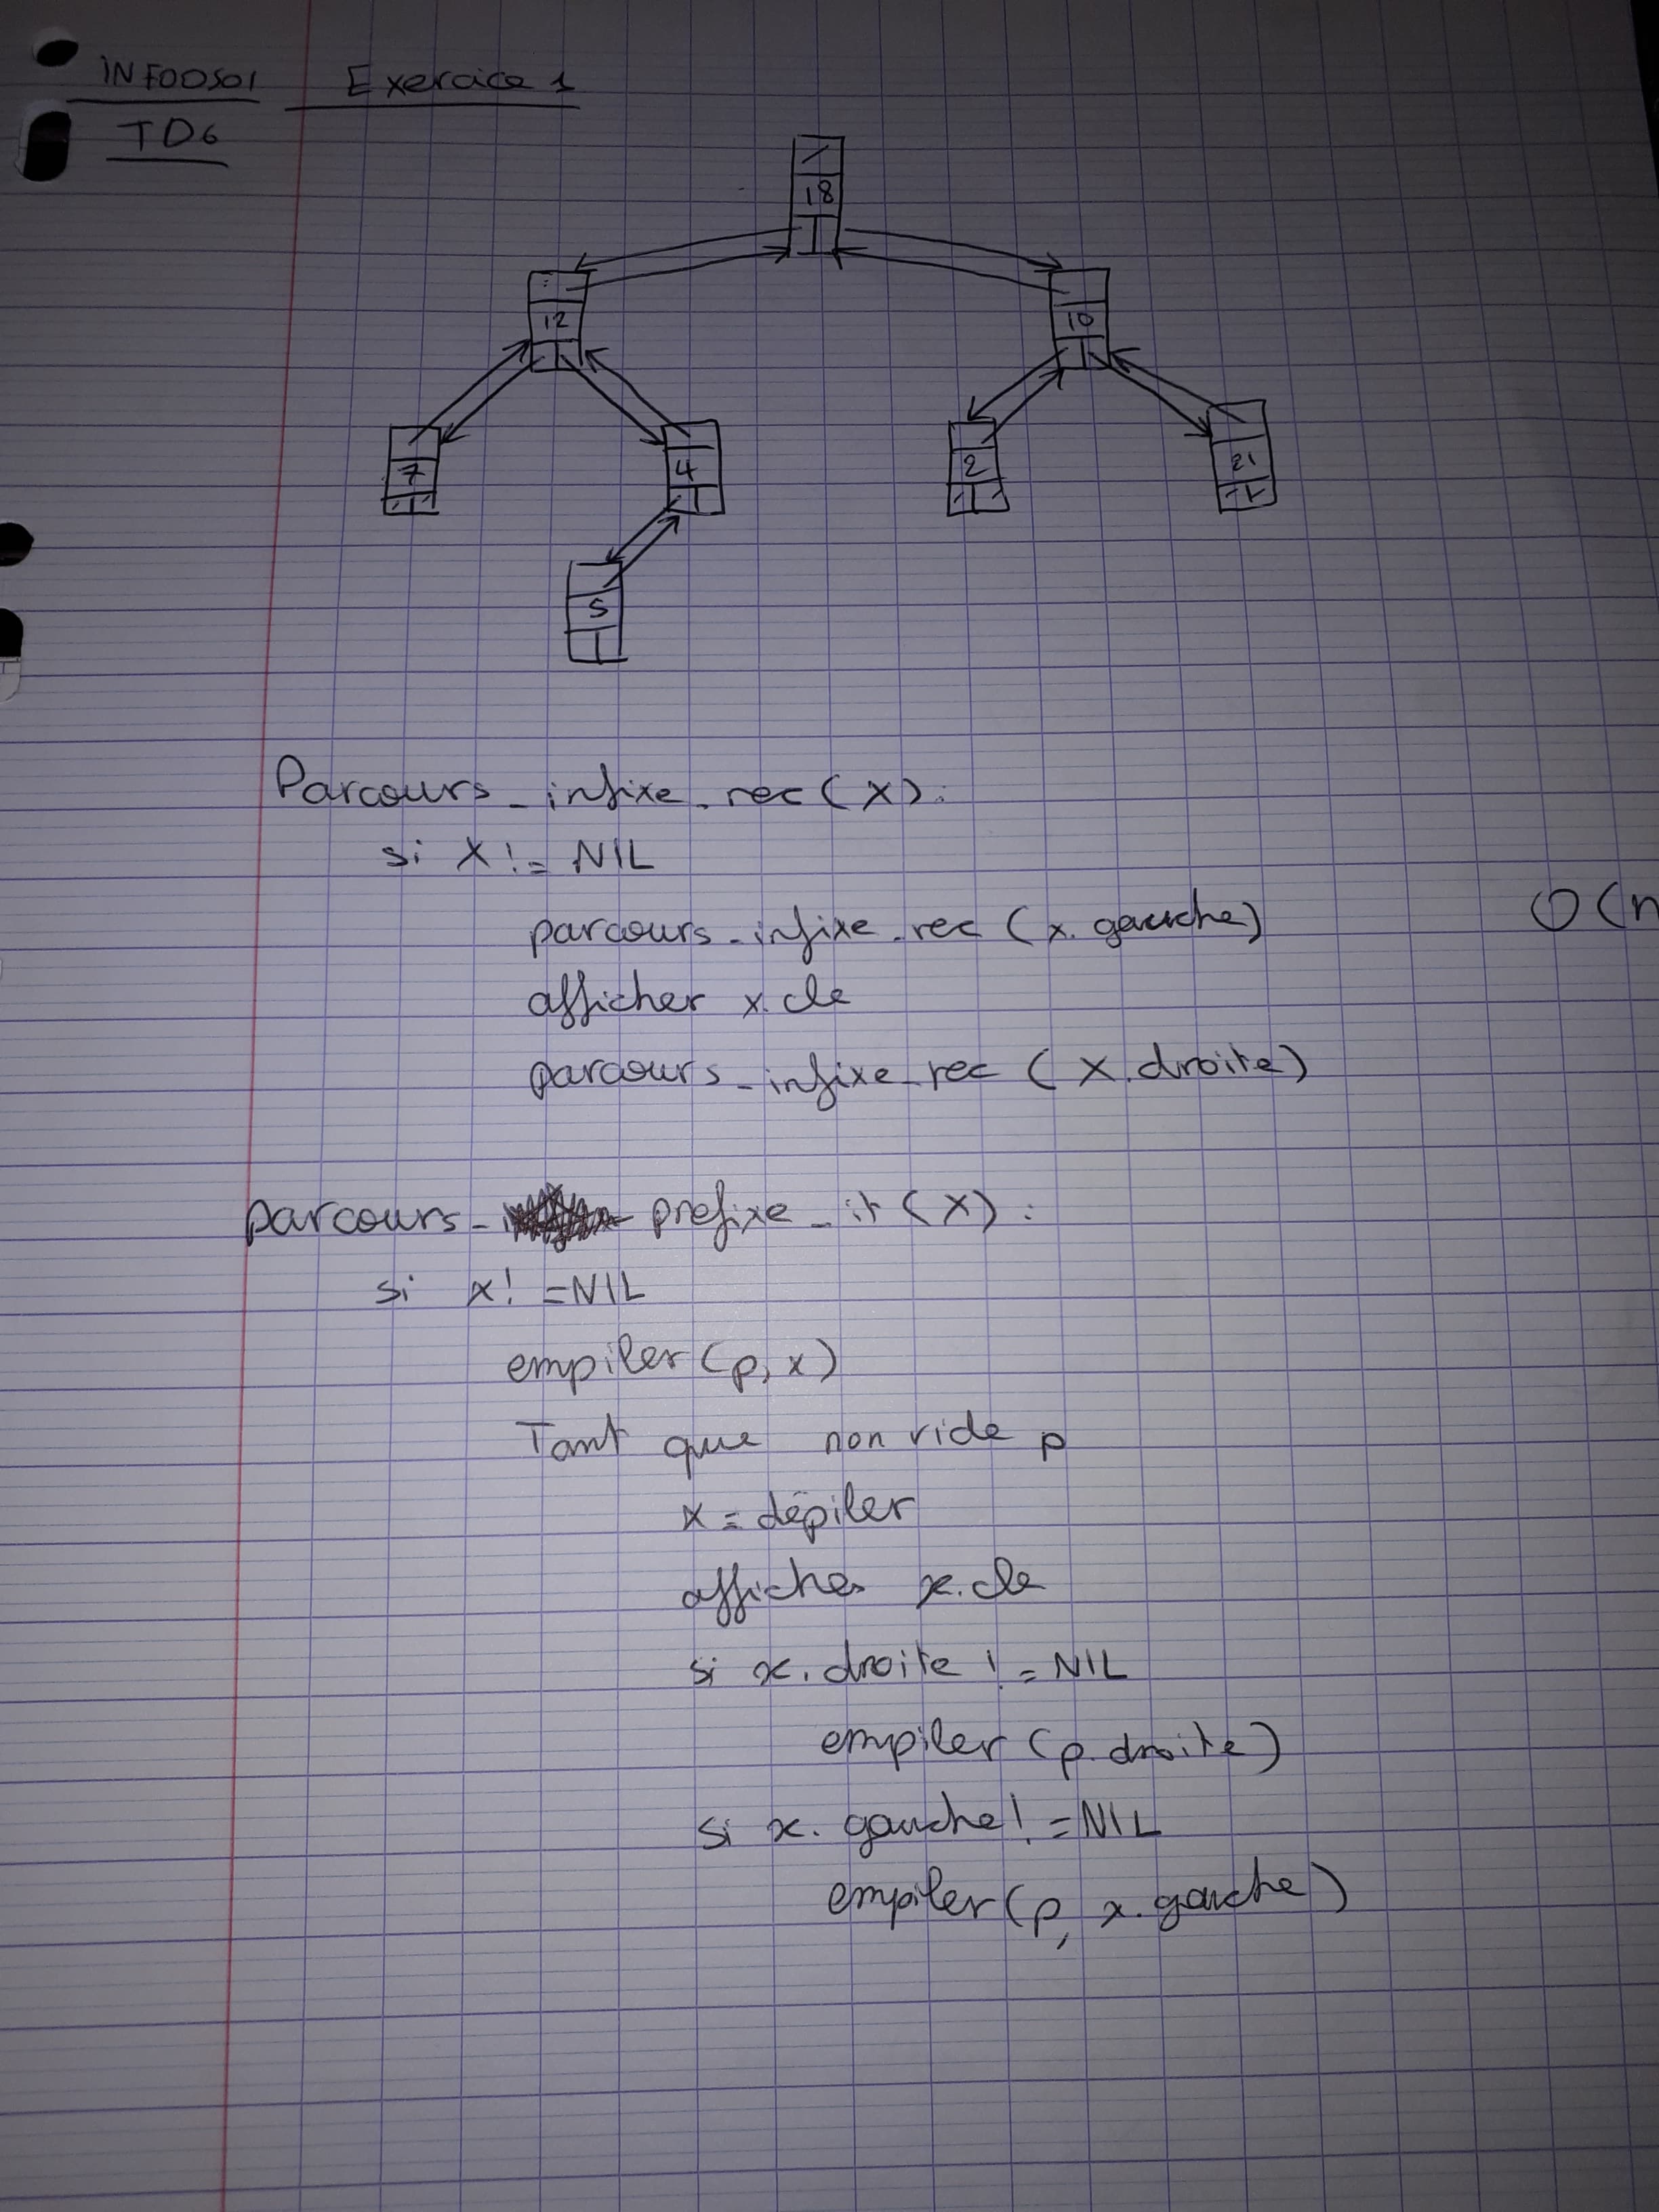 INFO0501 Exercice 1
TD6
18
12 10
7 4 2 21
5
Parcours_infixe_rec(X):
si X != NIL
parcours_infixe_rec (x.gauche) O(n
afficher x.cle
parcours_infixe_rec (X.droite)
parcours_ prefixe_it (X):
si x! =NIL
empiler (p, x)
Tant que non vide p
x = dépiler
affiche x.cle
si x.droite != NIL
empiler (p.droite)
si x.gauche! =NIL
empiler (p, x.gauche)